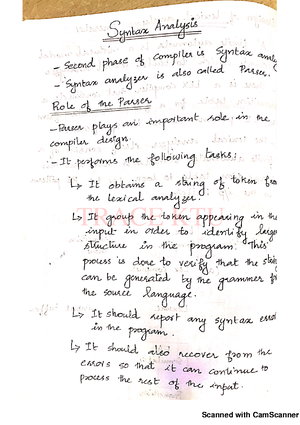 Syntax Analysis
- Second phase of compiler is Syntax analy
- Syntax analyzer is also called Parser.
Role of the Parser
- Parser plays an important role in the
compiler design.
- It performs the following tasks:
↳ It obtains a string of token from
the lexical analyzer.
↳ It group the token appearing in the
input in order to identify large
structure in the program. This
process is done to verify that the string
can be generated by the grammer for
the source language.
↳ It should report any syntax error
in the program.
↳ It should also recover from the
errors so that it can continue to
process the rest of the input.
Scanned with CamScanner